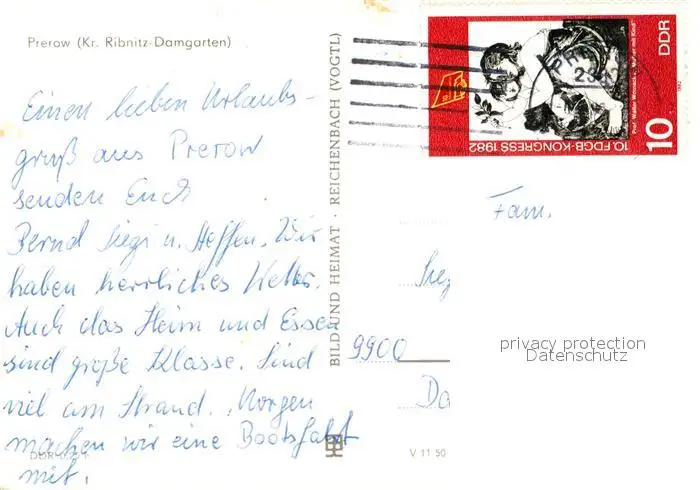 Prerow (Kr. Ribnitz-Damgarten)
Einen lieben Urlaubs-
gruß aus Prerow
senden Euch
Bernd Siegi u. Steffen. Wir
haben herrliches Wetter.
Auch das Heim und Essen
sind große Klasse. Sind
viel am Strand. Morgen
machen wir eine Bootsfahrt
mit.
BILD UND HEIMAT · REICHENBACH (VOGTL)
V 11 50
DDR
10
10. FDGB-KONGRESS 1982
Prof. Walter Womacka, „Mutter mit Kind“
1982
Fam.
9900
privacy protection
Datenschutz